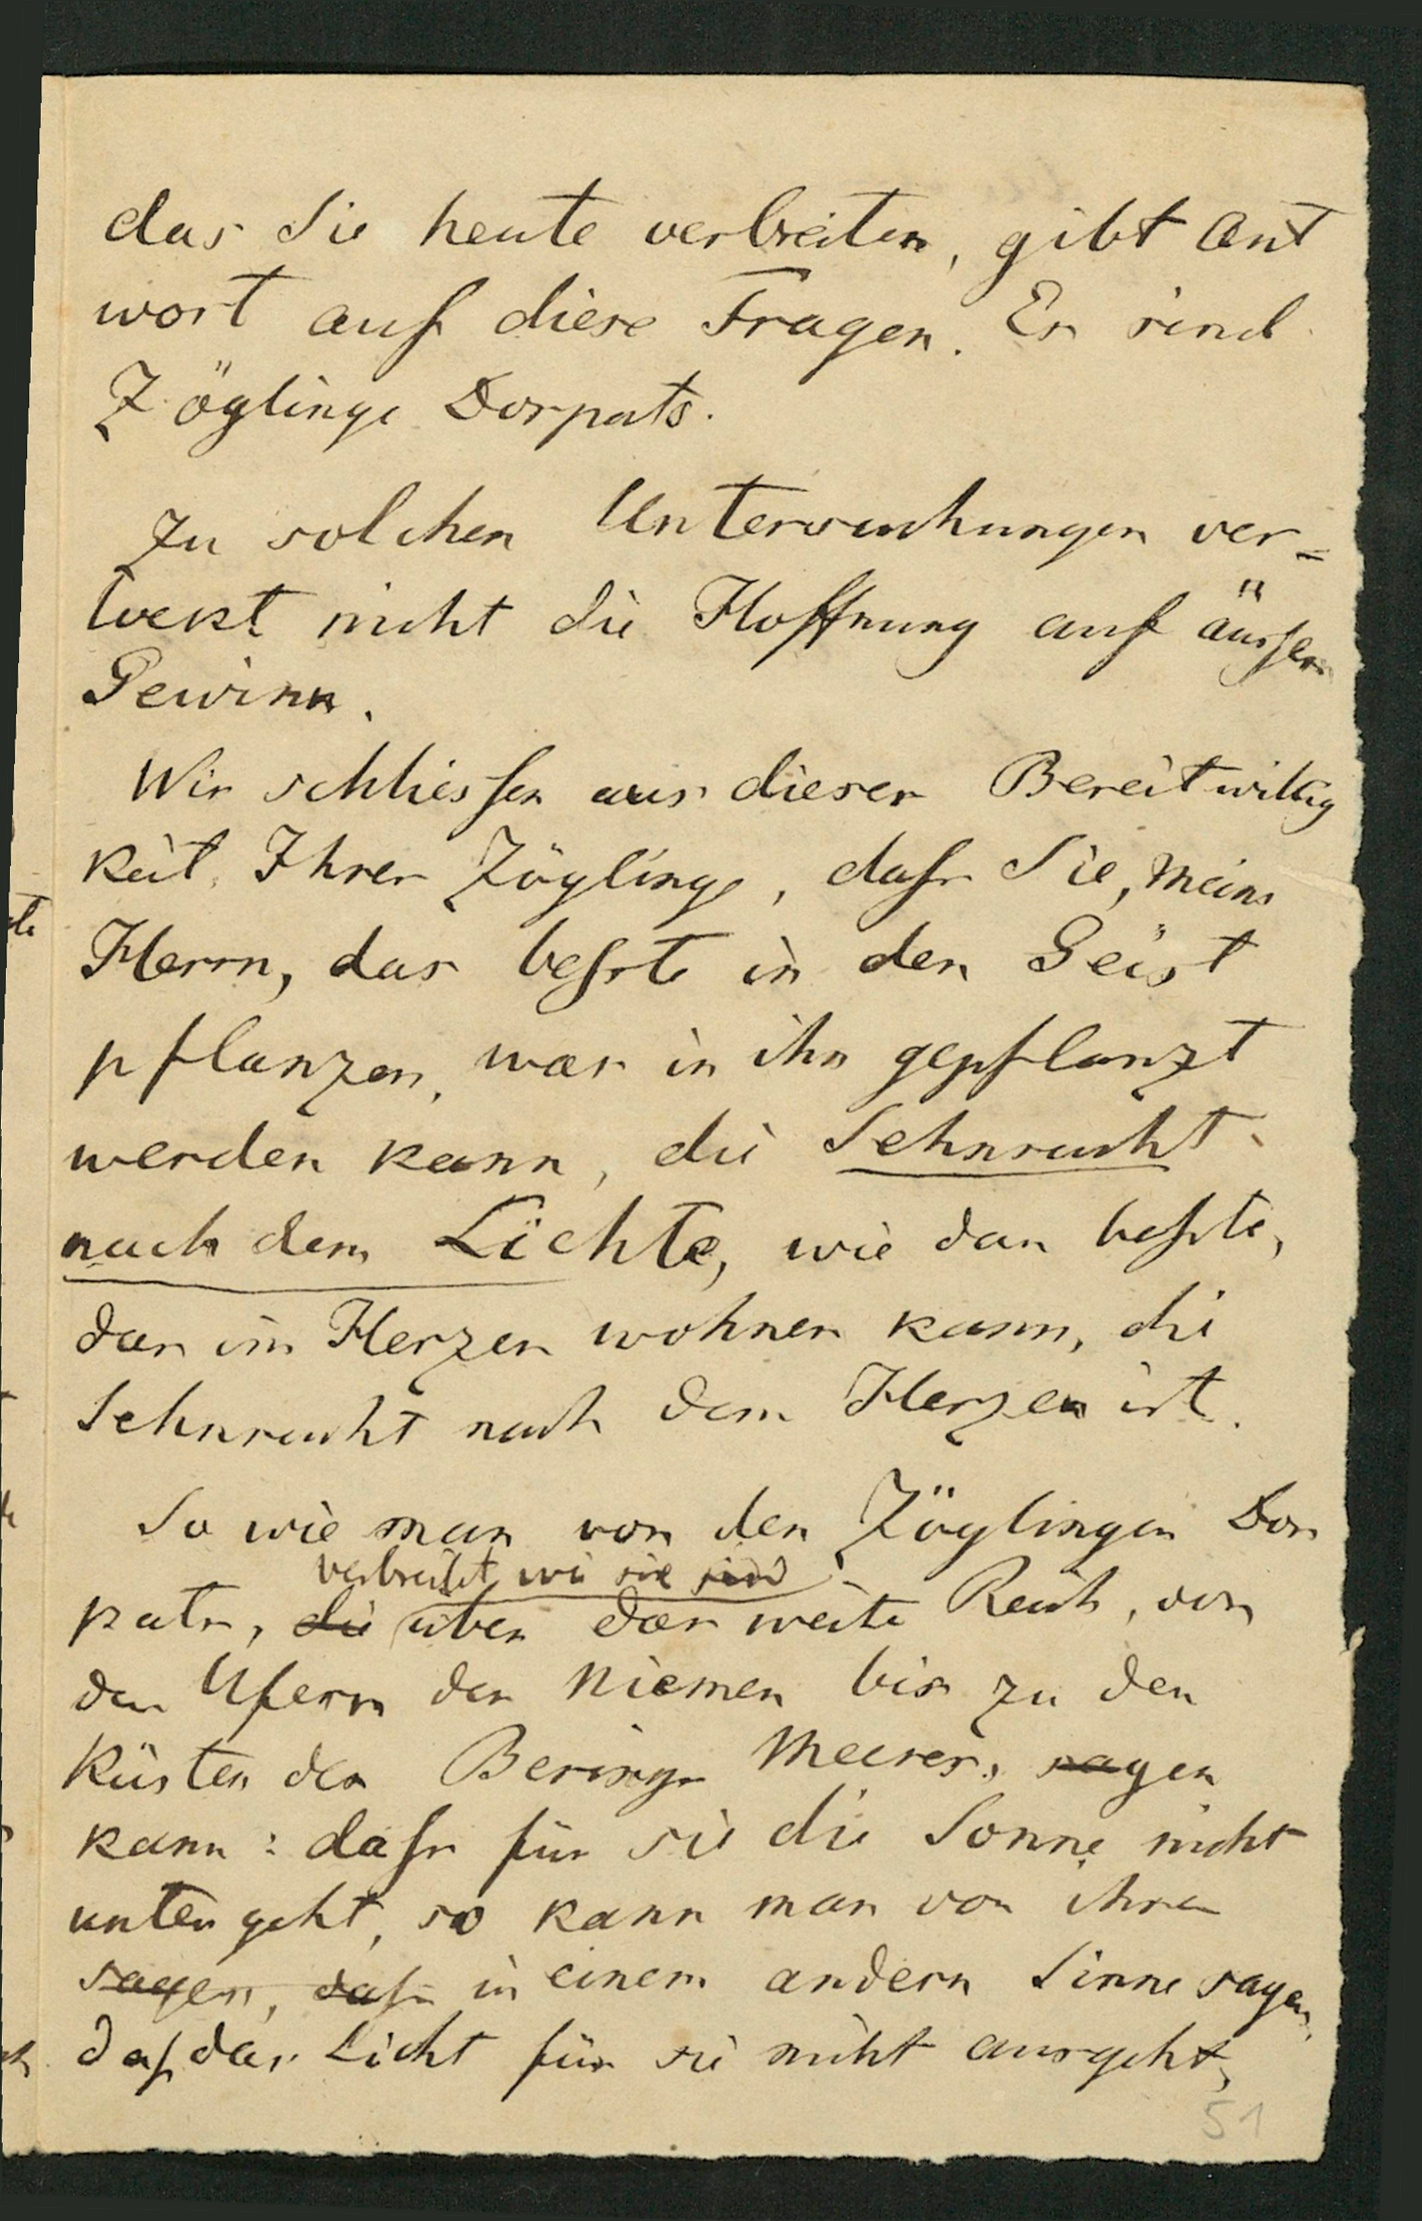 das Sie heute verbreiten, gibt Ant
wort auf diese Fragen. Es sind
Zöglinge Dorpats.
Zu solchen Untersuchungen ver=
lockt nicht die Hoffnung auf äussern
Gewinn.
Wir schliessen aus dieser Bereitwillig
keit Ihrer Zöglinge, dass Sie, meine
Herrn, das beste in den Geist
pflanzen, was in ihn gepflanzt
werden kann, die Sehnsucht
nach dem Lichte, wie das beste,
das im Herzen wohnen kann, die
Sehnsucht nach dem Herzen ist.
So wie man von den Zöglingen Dor
verbreitet wie sie sind
pats, die über das weite Reich, von
den Ufern des Niemen bis zu den
Küsten des Berings Meeres, sagen
kann: dass für sie die Sonne nicht
untergeht, so kann man von ihnen
sagen, dass in einem andern Sinne sagen,
dass das Licht für sie nicht ausgeht,
51